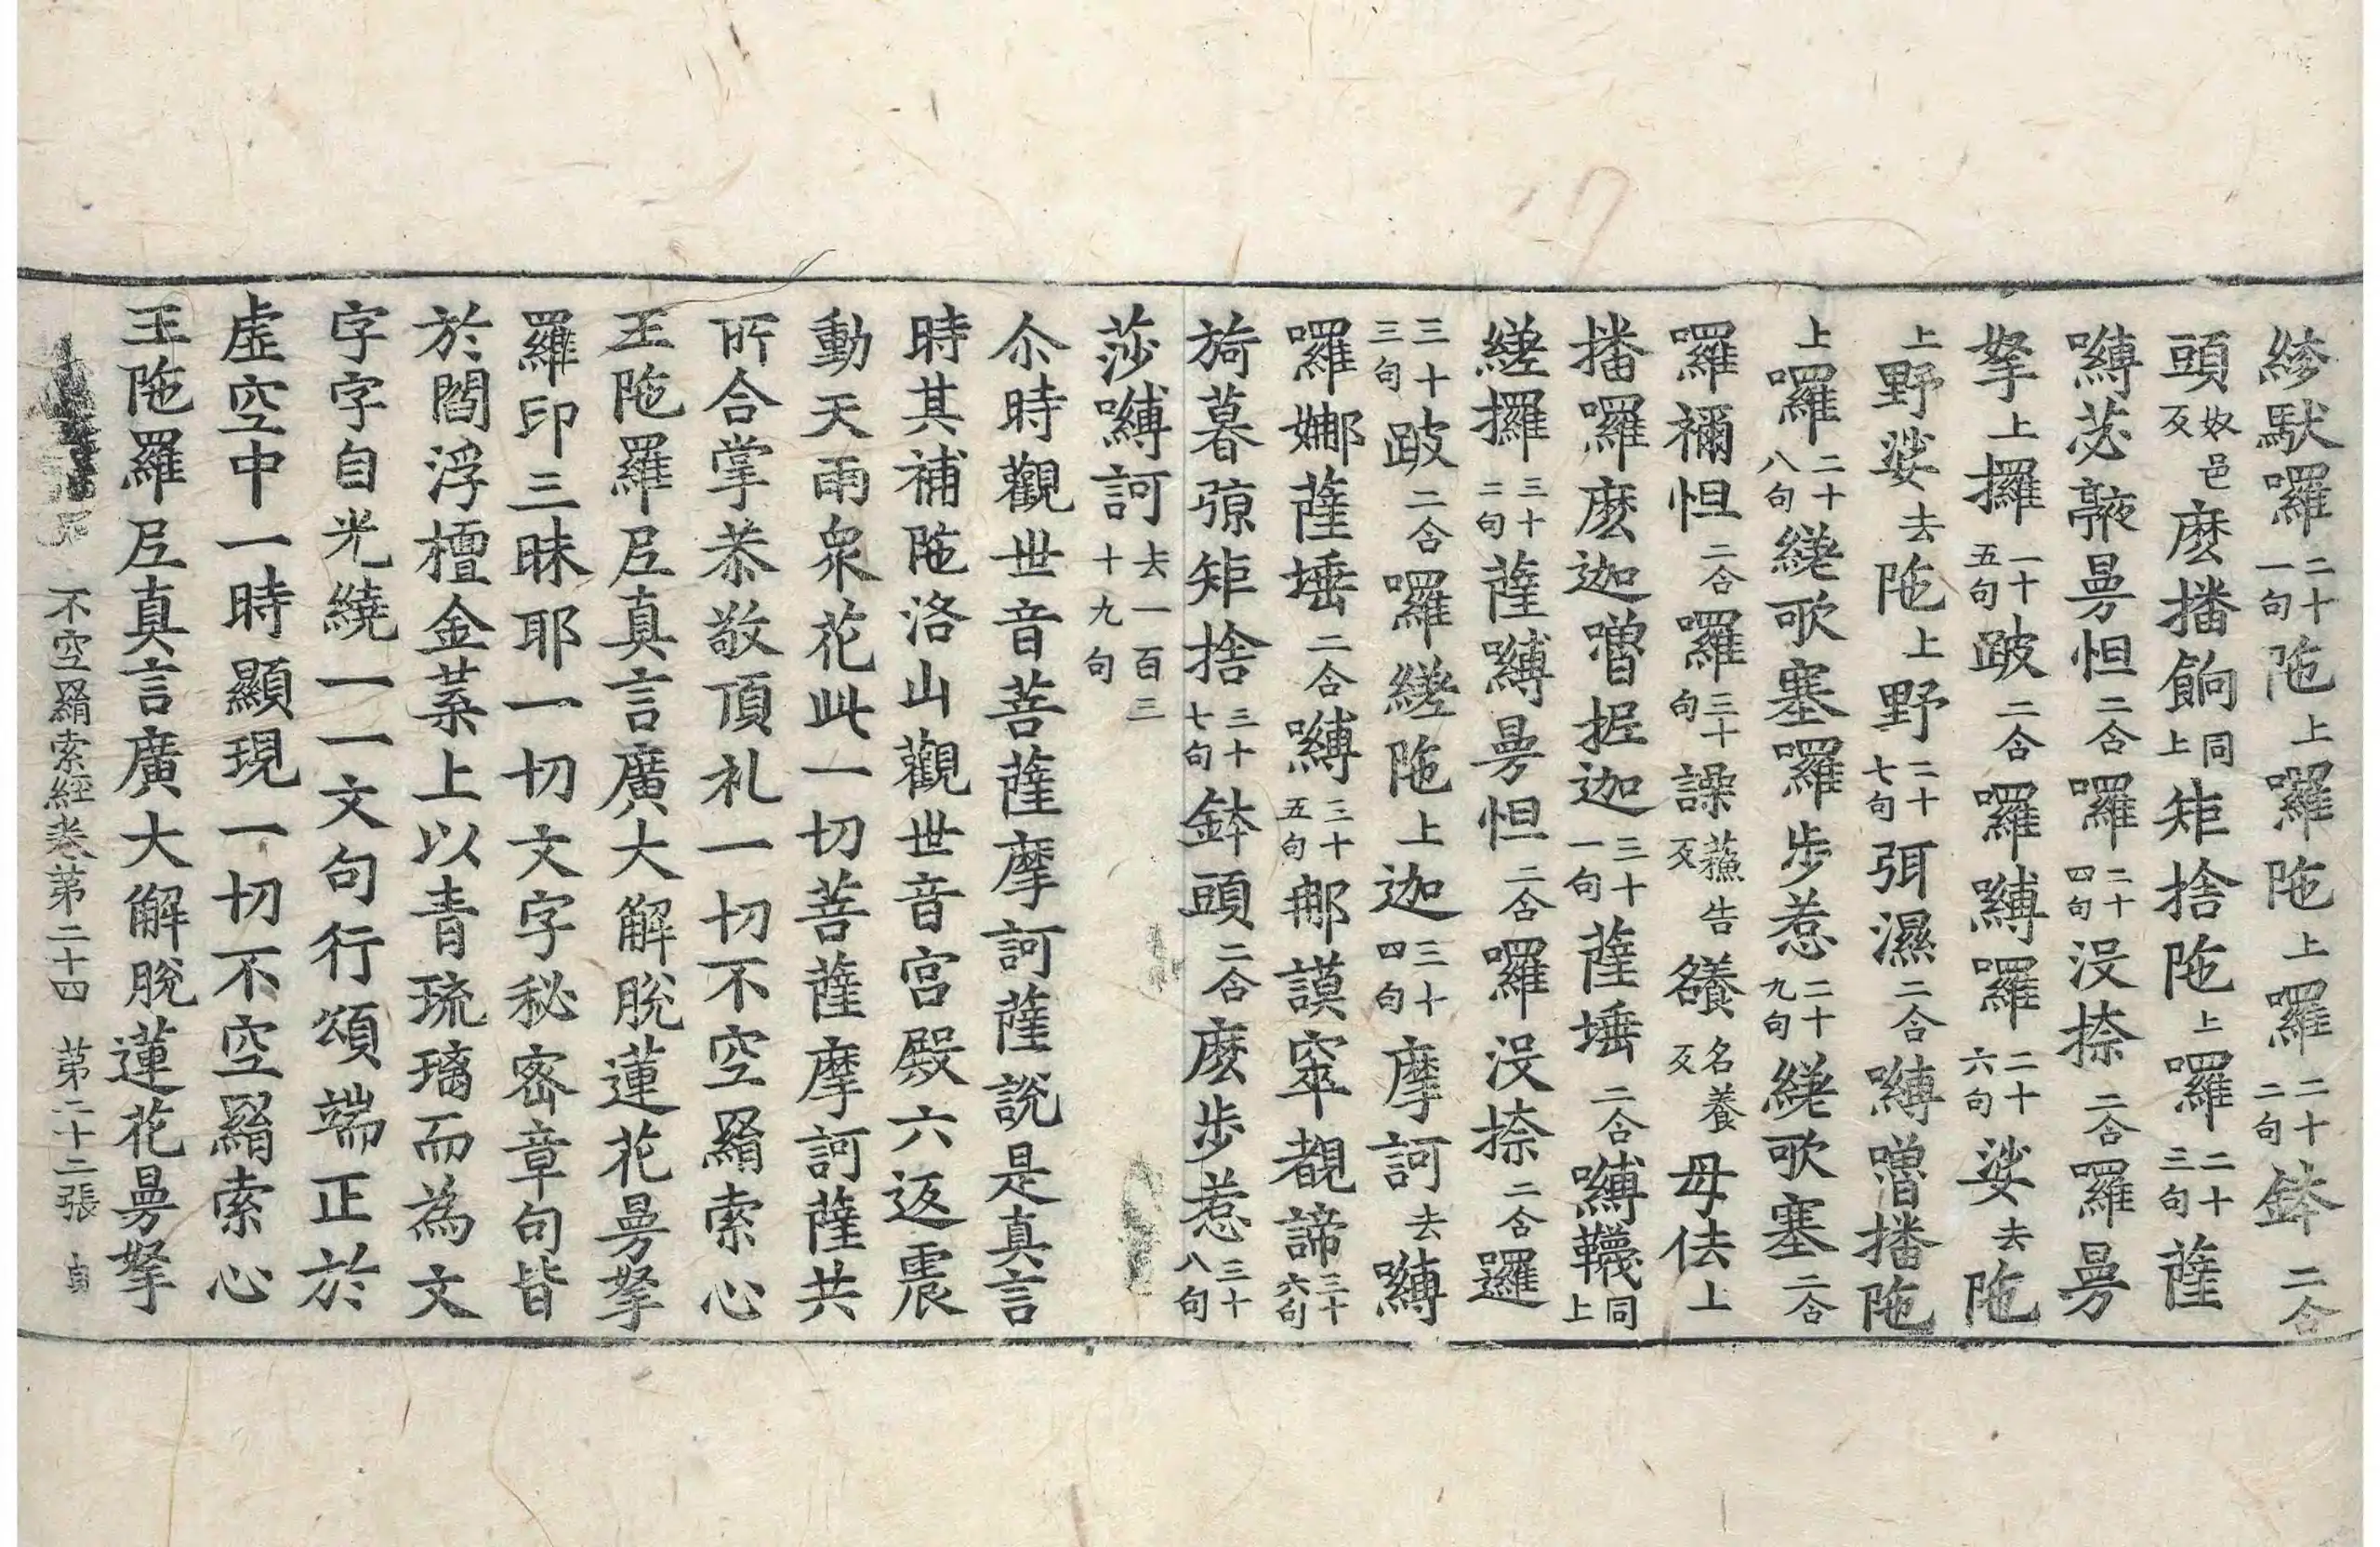 紾馱囉二十一句陁上囉陁上囉二十二句鉢二合
頭奴邑反麽播餉同上矩捨陁上囉二十三句薩
嚩苾䯝曼怛二合囉二十四句沒捺二合囉曼
拏上攞二十五句跛二合囉嚩囉二十六句娑去陁
上野娑去陁上野二十七句弭濕二合嚩噌播陁
上囉二十八句縒歌塞囉步惹二十九句縒歌塞二合
囉禰怛二合囉三十句譟蘓告反㿄名養反母佉上
播囉麽迦噌抳迦三十一句薩埵二合嚩韈同上
縒攞三十二句薩嚩曼怛二合囉沒捺二合邏
三十三句跛二合囉縒陁上迦三十四句摩訶去嚩
囉娜薩埵二合嚩三十五句那謨窣覩諦三十六句
旖暮弶矩捨三十七句鉢頭二合麽步惹三十八句
莎嚩訶去一百三十九句
尒時觀世音菩薩摩訶薩說是真言
時其補陁洛山觀世音宮殿六返震
動天雨衆花此一切菩薩摩訶薩共
所合掌恭敬頂礼一切不空羂索心
王陁羅尼真言廣大解脫蓮花曼拏
羅印三昧耶一切文字秘密章句皆
於閻浮檀金葉上以青琉璃而為文
字字自光繞一一文句行頌端正於
虛空中一時顯現一切不空羂索心
王陁羅尼真言廣大解脫蓮花曼拏
不空羂索經卷第二十四 第二十二張